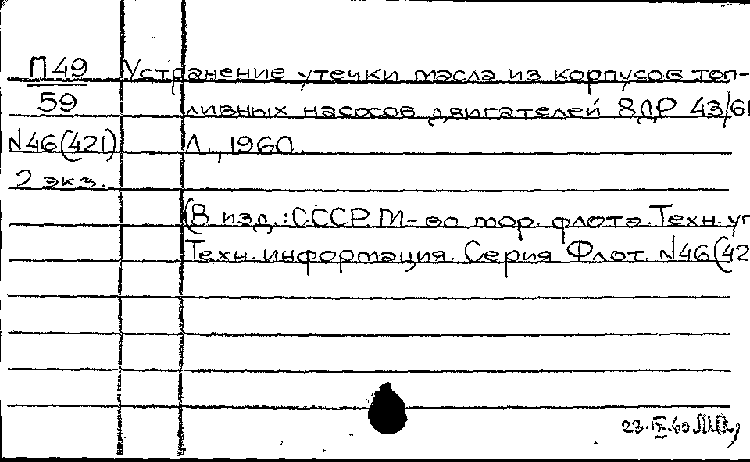 П49 Устранение утечки масла из корпусов топ-
59 ливных насосов двигателей 8ДР 43/61
N46(421) Л., 1960.
2 экз.
(В изд.: СССР. М-во мор. флота. Техн. уп
Техн. информация. Серия Флот. N46(42
23.IX.60